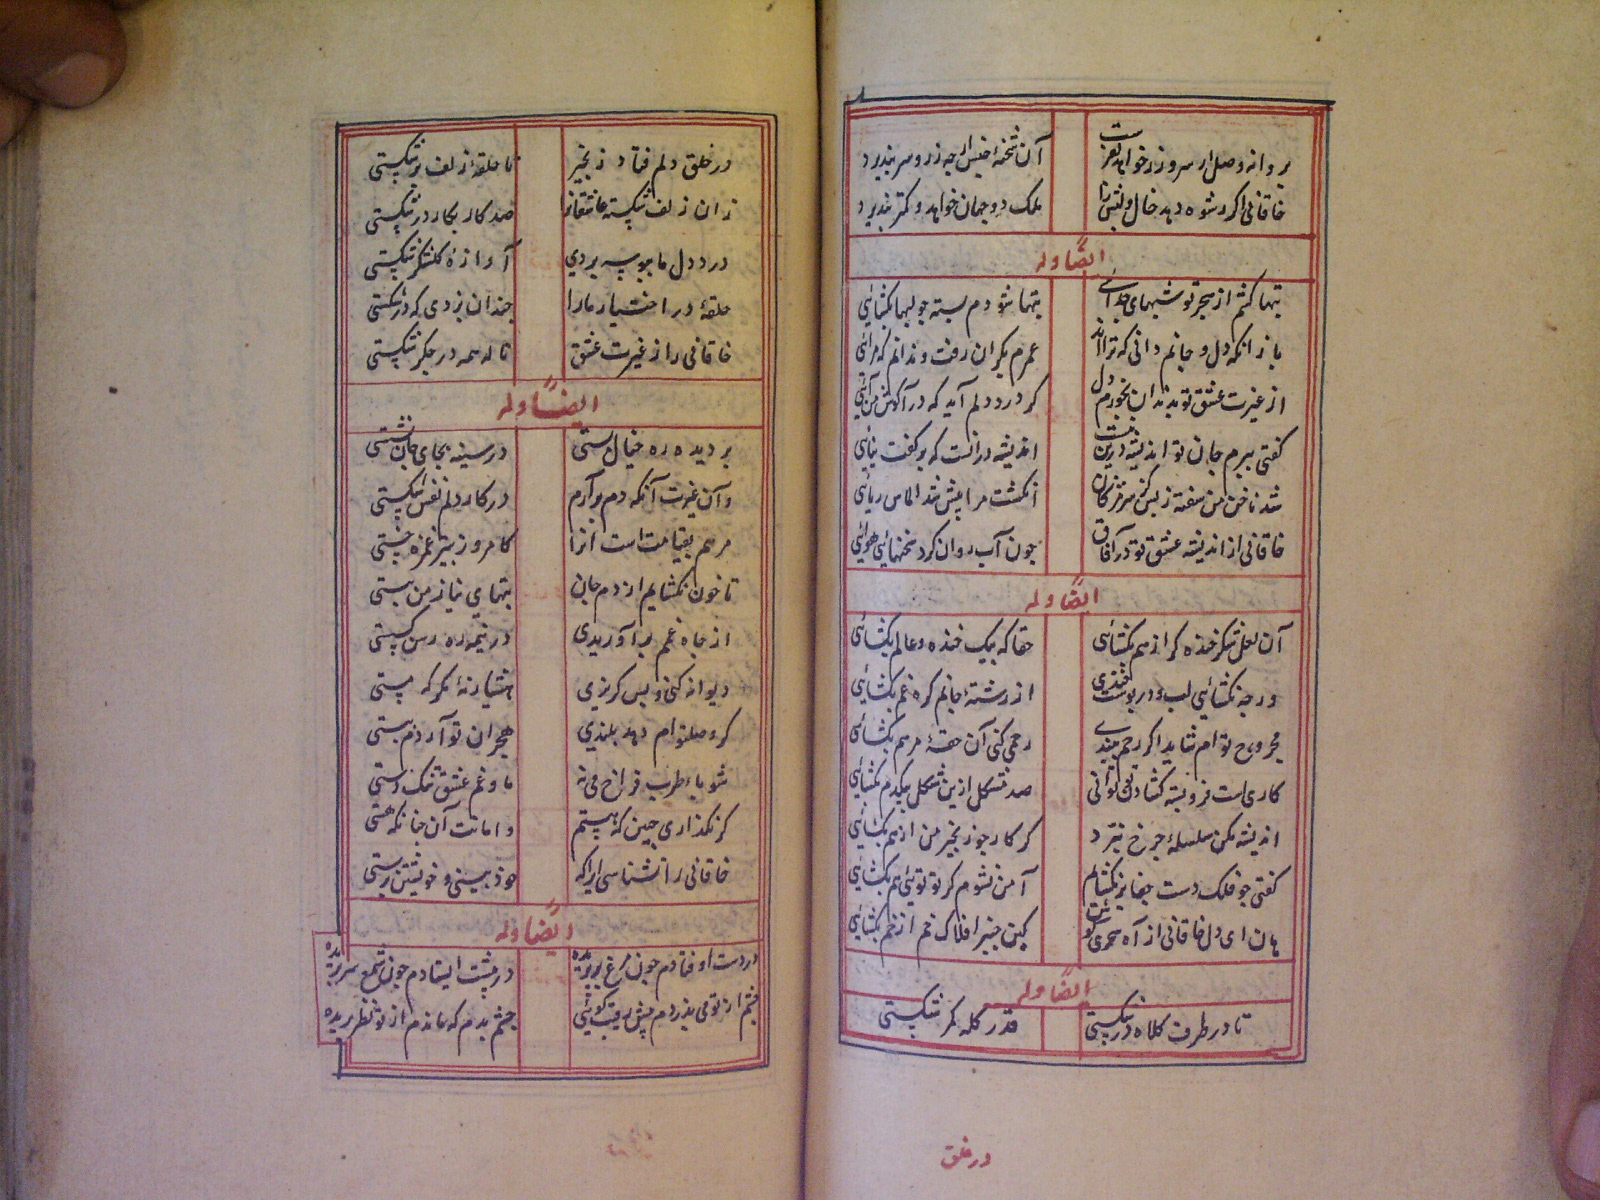 پروانه وصل ار سر و زر خواهد نغز است آن شخنهٔ خیس ار چه زر و سر بپذیرد
خاقانی اگر رشوه دهد خال و لبش را ملک دو جهان خواهد و کمتر بپذیرد
ایضاً وله
تبها کشم از هجر تو شبهای جدائی تبها شودم بسته چو لبها بگشائی
باز آنکه دل و جانم دانی که تراند عمرم بکران رفت و ندانم که کرائی
از غیرت عشق تو بدندان بخورم دل گر در دلم آید که در آغوش من آئی
گفتی ببرم جان تو اندیشه درین نیست اندیشه در آنست که بر گفت نپائی
شد ناخن من سفته ز بس کز سر مژگان انگشت مرا پیشه شد الماس ربائی
خاقانی از اندیشه عشق تو در آفاق چون آب روان کرد سخنهای هوائی
ایضاً وله
آن لعل شکر خنده گر از هم بگشائی حقا که بیک خنده دو عالم بگشائی
ورچه نگشائی لب و در پوست بخندی از رشته جانم گره غم بگشائی
مجروح توام شاید اگر زخم ببندی رحمی کنی آن حقهٔ مرهم بگشائی
کاری است فرو بسته گشادن تو توانی صد مشکل ازین شکل بیکدم بگشائی
اندیشه مکن سلسله چرخ نبرد گر کار چو زنجیر من از هم بگشائی
گفتی چو فلک دست جفا بر نگشایم آ من نشوم گر تو توئی هم بگشائی
هان ای دل خاقانی از آه سحری کوش کین چنبر افلاک خم از خم بگشائی
ایضاً وله
تا در طرف کلاه در شکستی قدر کله کمر شکستی
در خلق
در حلق دلم فتاد زنجیر تا حلقهٔ زلف بر شکستی
زان زلف شکسته عاشقانرا صد کار بکار در شکستی
درد دل ما ببوسه بردی آوازهٔ گلشکر شکستی
حلقهٔ در اختیار ما را چندان بزدی که در شکستی
خاقانی را ز غیرت عشق ناله همه در جگر شکستی
ایضاً وله
بر دیده ره خیال بستی در سینه بجای جان نشستی
وآن غیرت آنکه دم برآرم در کار دلم نفس شکستی
مرهم بقیامت است آنرا کامروز بتیر غمزه خستی
تا خون نگشایم از دم جان تبهای نیاز من نبستی
از چاه غمم برآوریدی در نیمه ره رسن گسستی
دیوانه کنی و پس گریزی هشیارنهٔ مگر که مستی
گر وصل توام دهد بلندی هجران تو آردم بپستی
شو با طرب فراخ می نه ما و غم عشق و تنگ دستی
گر نگذاری چنین که هستم وامانت آن چنانکه هستی
خاقانی را نشناسی ایراکه خود بینی و خویشتن پرستی
ایضاً وله
در دست اوفتادم چون مرغ پر بریده در پیشت ایستادم چون شمع سر بریده
خشم از تو می پذیردم پیش رقیب گوئی چشم بدم که ماندم از تو نظر بریده